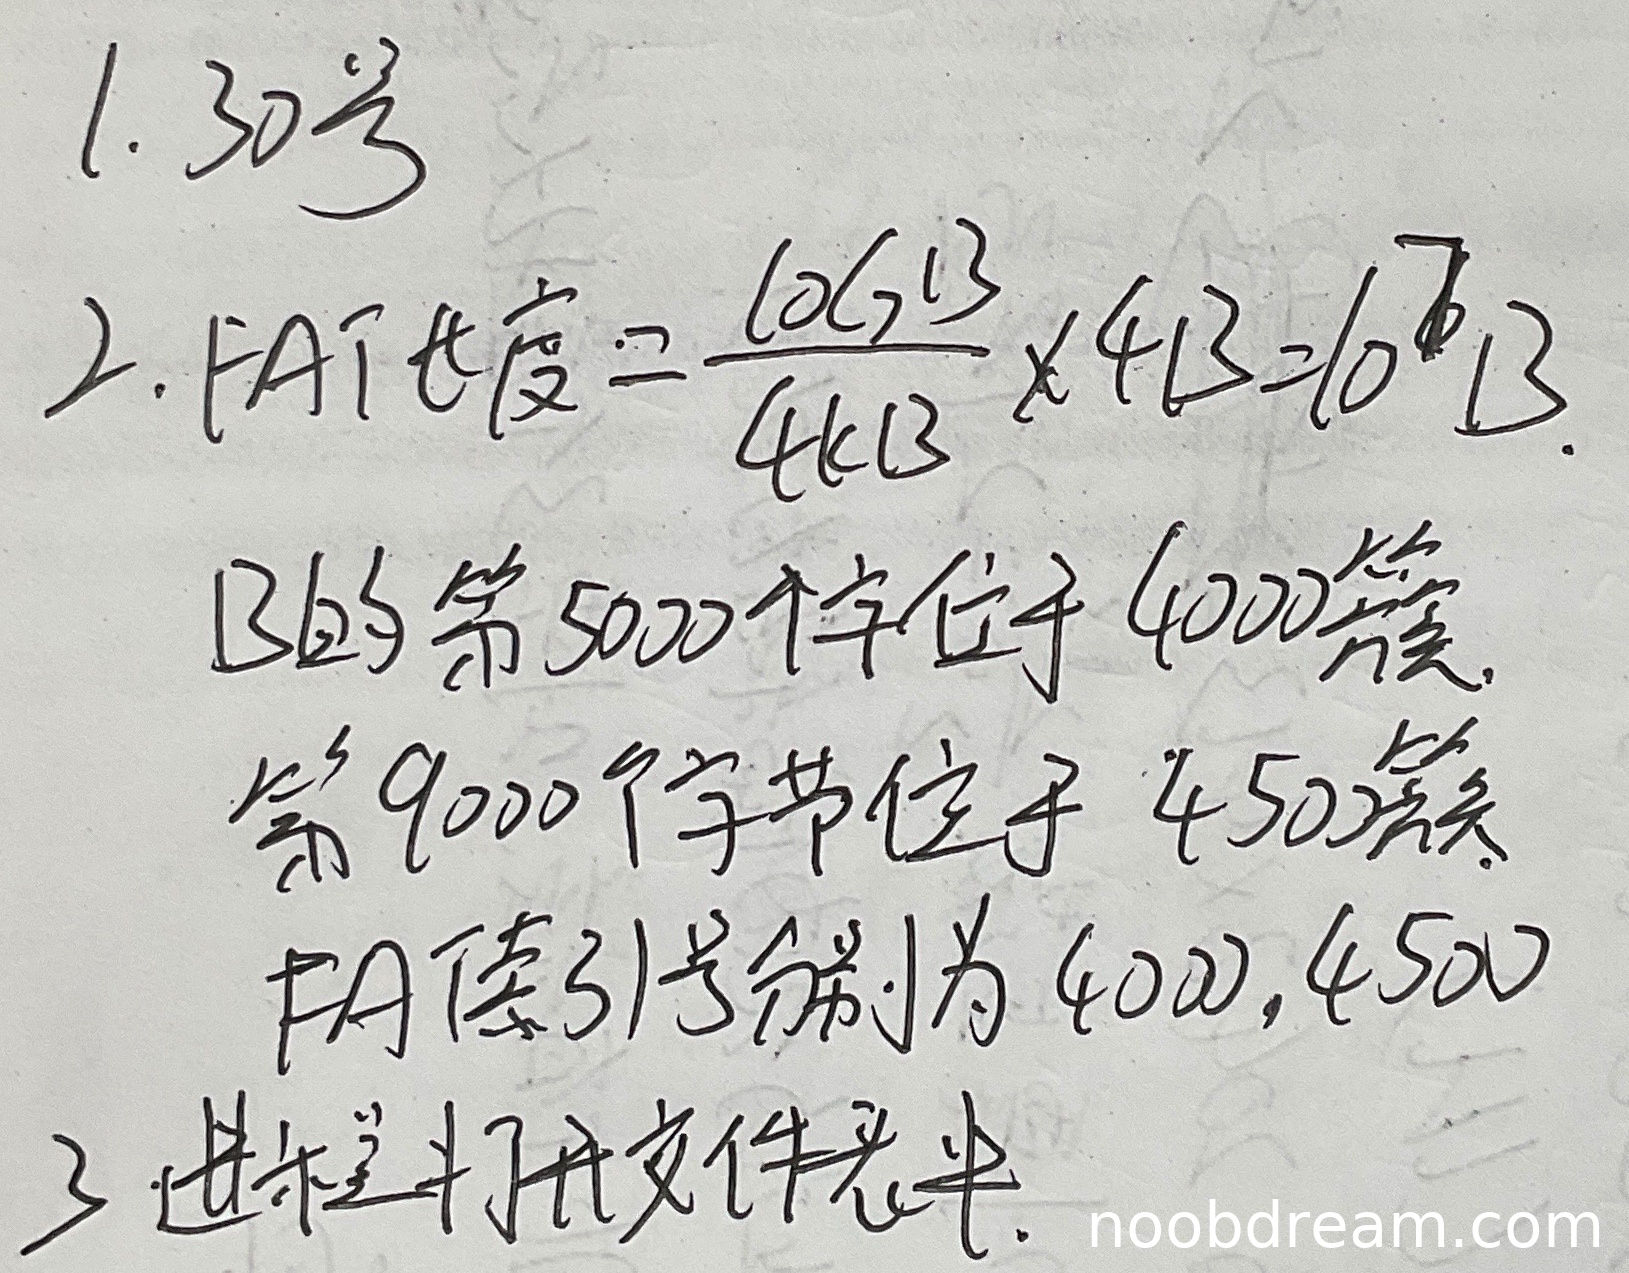 1. 30号
2. FAT长度 = 10GB/4KB × 4B = 10⁷B.
B的第5000个字位于4000簇.
第9000个字节位于4500簇.
FAT索引号分别为4000,4500
3.进程打开文件表中.
noobdream.com